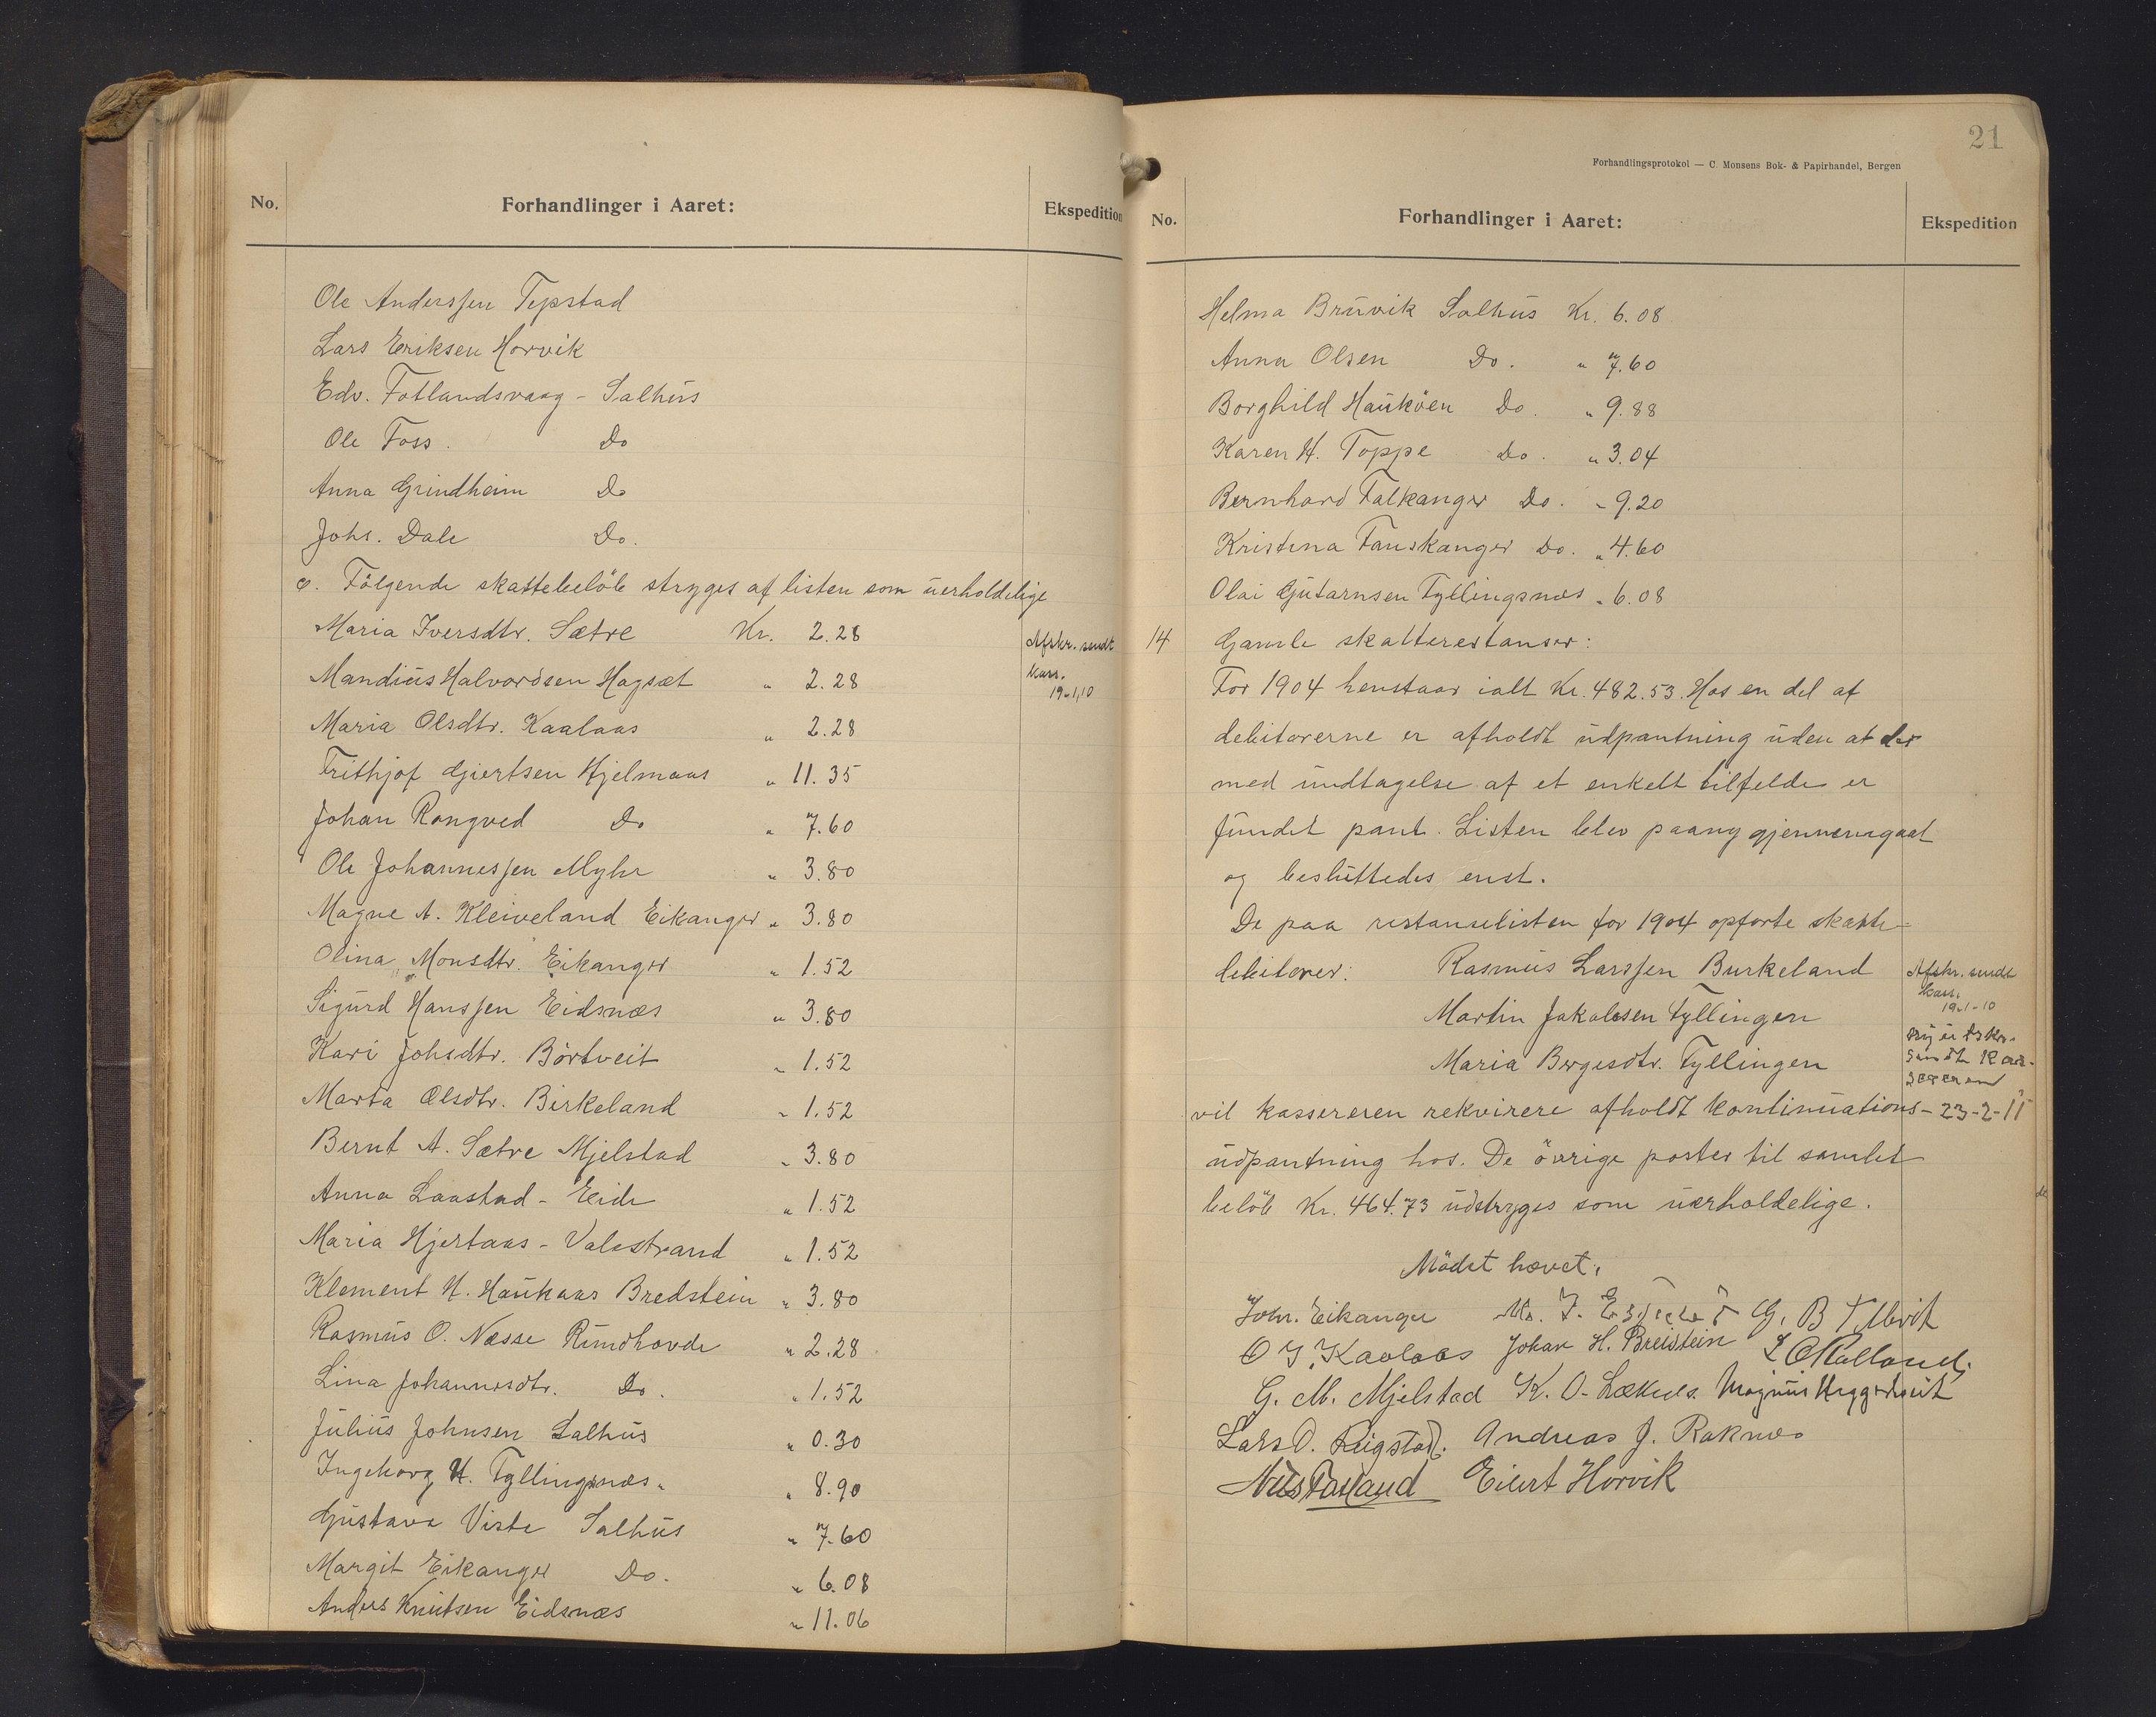 No. Forhandlinger i Aaret: Ekspedition
Ole Anderssen Tepstad
Lars Eriksen Horvik
Edv. Fotlandsvaag - Salhus
Ole Foss. Do
Anna Grindheim Do
Johs. Dale Do.
c. Følgende skattebeløb stryges af listen som uerholdelige
Maria Iversdtr. Sætre Kr. 2.28 Afskr. sendt
Kass.
19-1,10
Mandius Halvorsen Hagsæt " 2.28
Maria Olsdtr. Kaalaas " 2.28
Frithjof Gjertsen Hjelmaas " 11.35
Johan Rongved Do " 7.60
Ole Johannessen Myhr " 3.80
Magne A. Kleiveland Eikanger " 3.80
Olina Monsdtr. Eikanger " 1.52
Sigurd Hanssen Eidsnæs " 3.80
Kari Johsdtr. Børtveit " 1.52
Marta Olsdtr. Birkeland " 1.52
Bernt A. Sætre Mjelstad " 3.80
Anna Laastad - Eide " 1.52
Maria Hjertaas - Valestrand " 1.52
Klement H. Haukaas Bredstein " 3.80
Rasmus O. Næsse Rundhovde " 2.28
Lina Johannesdtr. Do. " 1.52
Julius Johnsen Salhus " 0.30
Ingeborg H. Tyllingsnæs. " 8.90
Gustava Viste Salhus " 7.60
Margit Eikanger Do. " 6.08
Anders Knutsen Eidsnæs " 11.06
21
Forhandlingsprotokol — C. Monsens Bok- & Papirhandel, Bergen
No. Forhandlinger i Aaret: Ekspedition
Helma Bruvik Salhus Kr. 6.08
Anna Olsen Do. " 7.60
Borghild Haukøen Do. " 9.88
Karen H. Toppe Do. " 3.04
Bernhard Falkanger Do. " 9.20
Kristina Fauskanger Do. " 4.60
Olai Gutarnsen Tyllingsnæs " 6.08
14 Gamle skatterestanser:
For 1904 henstaar ialt Kr. 482.53. Hos en del af
debitorerne er afholdt udpantning uden at der
med undtagelse af et enkelt tilfelde er
fundet pant. Listen blev paany gjennemgaat
og besluttedes enst.
De paa restanselisten for 1904 opførte skatte-
debitorer: Rasmus Larssen Burkeland Afskr. sendt
Kass.
19-1-10
Martin Jakobsen Tyllingen
Maria Børgesdtr. Tyllingen
Ny utskr.
sendt Kas-
sereren
vil kassereren rekvirere afholdt kontinuations- 23-2-11
udpantning hos. De øvrige poster til samlet
beløb Kr. 464.73 udstryges som uerholdelige.
Mødet hævet.
Johr. Eikanger G. B Tellevik
O J. Kaalaas Johan H. Breistein L O Rolland.
G. M. Mjelstad K. O. Magnus Heggertveit
Lars O. Reigstad. Andreas J. Raknes
Nils Farland Eilert Horvik